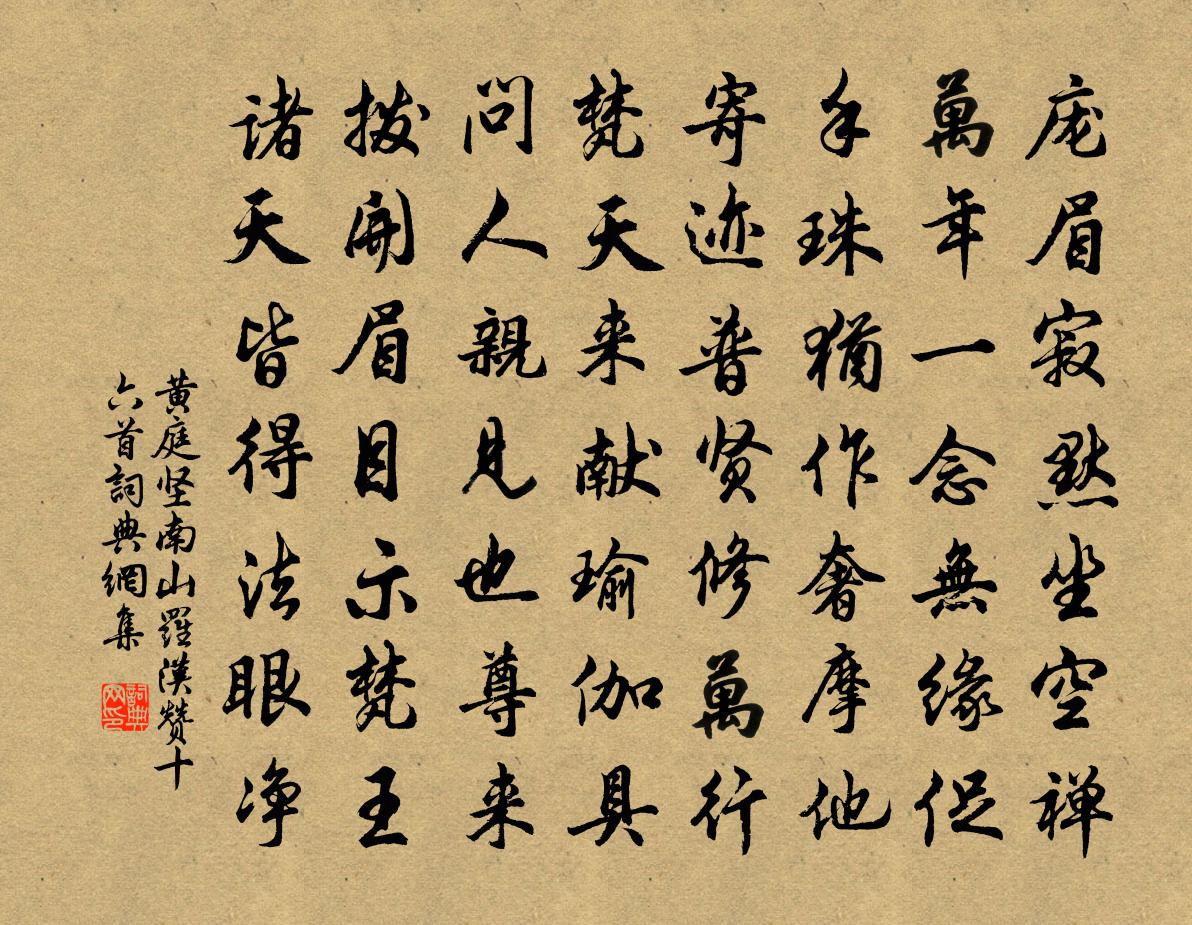 庞眉寂默坐空禅
萬年一念無緣促
手珠猶作奢摩他
寄迹普贤修萬行
梵天来献瑜伽具
問人親見也尊来
拨開眉目示梵王
诸天皆得法眼净
黄庭坚南山羅漢赞十
六首詞典網集
詞典网印